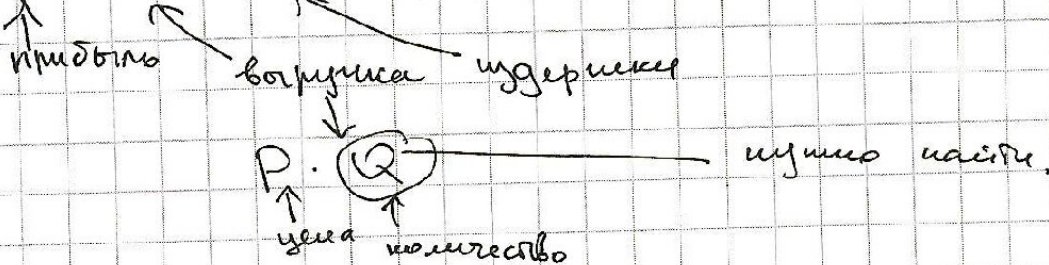 прибыль выручка издержки
P · Q нужно найти.
цена количество